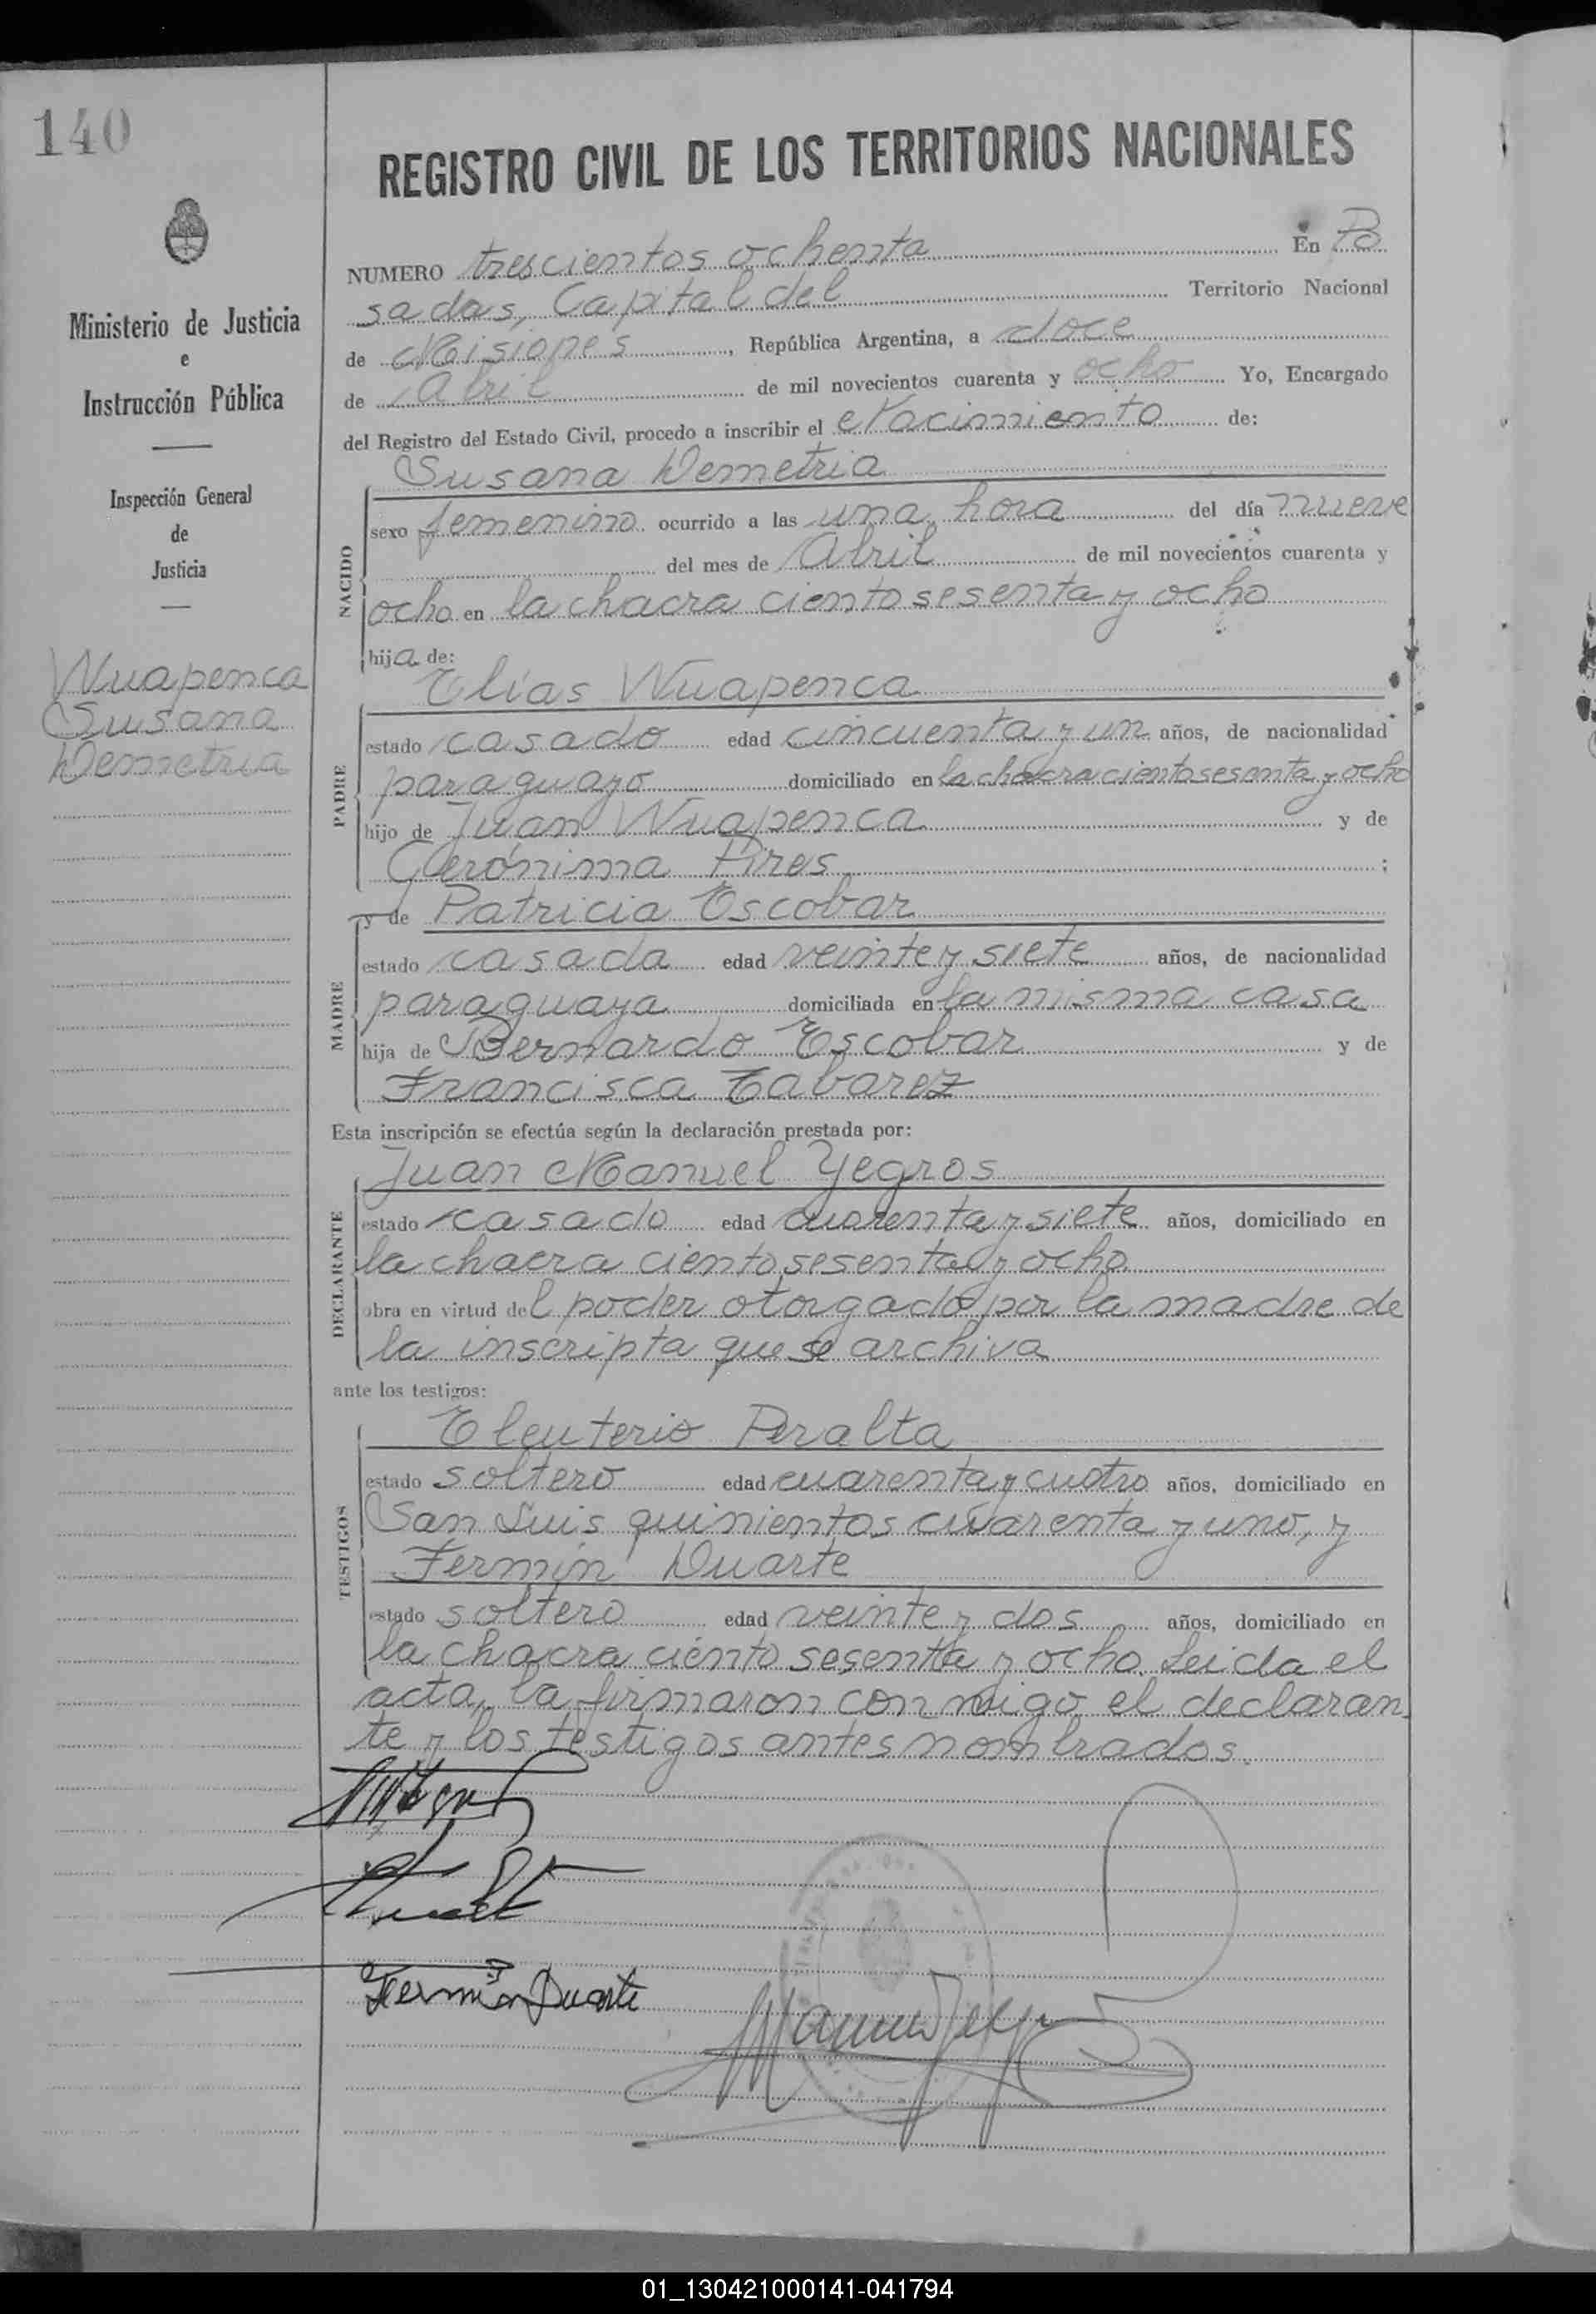 140
Ministerio de Justicia
e
Instrucción Pública
Inspección General
de
Justicia
Wuapenca
Susana
Demetria
REGISTRO CIVIL DE LOS TERRITORIOS NACIONALES
NUMERO trescientos ochenta En Po
sadas, Capital del Territorio Nacional
de Misiones, República Argentina, a doce
de Abril de mil novecientos cuarenta y ocho Yo, Encargado
del Registro del Estado Civil, procedo a inscribir el Nacimiento de:
NACIDO
Susana Demetria
sexo femenino ocurrido a las una hora del día nueve
del mes de Abril de mil novecientos cuarenta y
ocho en la chacra ciento sesenta y ocho
hija de:
PADRE
Elías Wuapenca
estado casado edad cincuenta y un años, de nacionalidad
paraguayo domiciliado en la chacra ciento sesenta y ocho
hijo de Juan Wuapenca y de
Gerónima Pires;
MADRE
y de Patricia Escobar
estado casada edad veinte y siete años, de nacionalidad
paraguaya domiciliada en la misma casa
hija de Bernardo Escobar y de
Francisca Tabarez
Esta inscripción se efectúa según la declaración prestada por:
DECLARANTE
Juan Manuel Yegros
estado casado edad cuarenta y siete años, domiciliado en
la chacra ciento sesenta y ocho
obra en virtud del poder otorgado por la madre de
la inscripta que se archiva
ante los testigos:
TESTIGOS
Eleuterio Peralta
estado soltero edad cuarenta y cuatro años, domiciliado en
San Luis quinientos cuarenta y uno, y
Fermín Duarte
estado soltero edad veinte y dos años, domiciliado en
la chacra ciento sesenta y ocho. Leida el
acta, la firmaron conmigo el declaran
te y los testigos antes nombrados.
Fermín Duarte
01_130421000141-041794